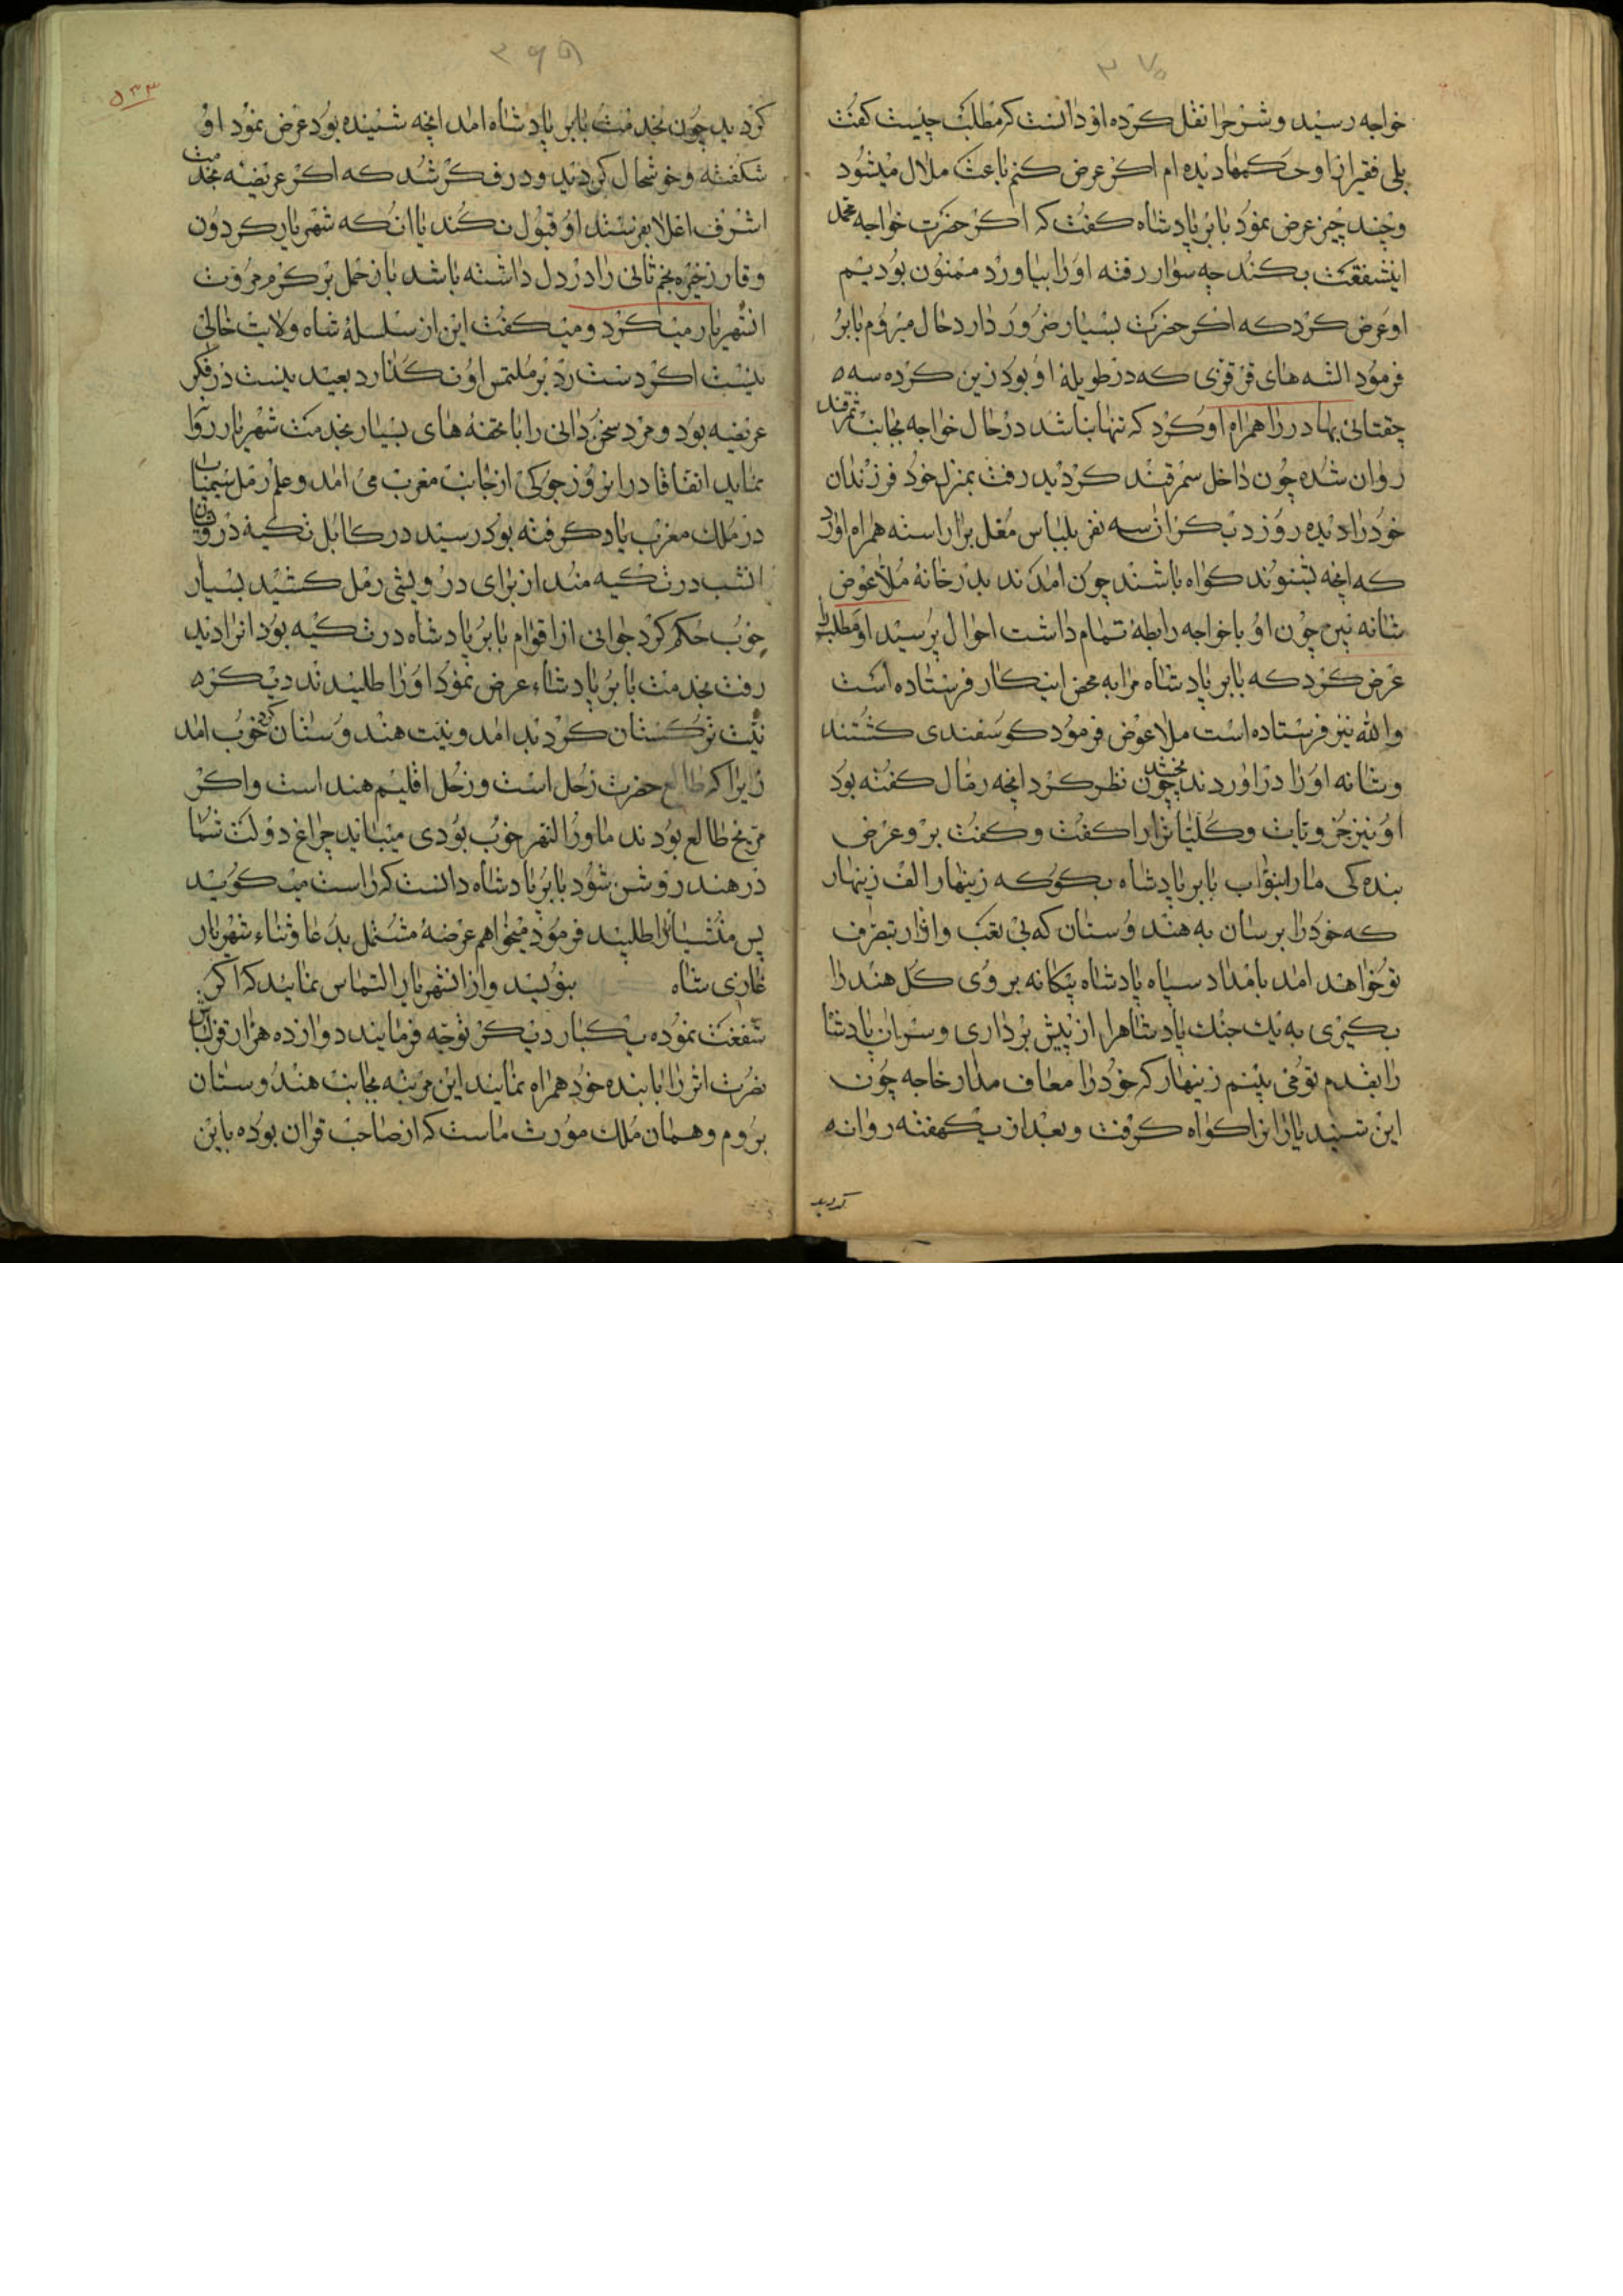 خواجه رسید و شرح را نقل کرده او دانست که مطلب چیست کفت
بلی فقیر از او حکمها دیده ام اکر عرض کنم باعث ملال میشود
و چند چیز عرض نمود بابر پادشاه کفت که اکر حضرت خواجه محمد
اینشفقت بکنند چه سوار رفته او را بیاورد ممنون بودیم
او عرض کرد که اکر حضرت بسیار ضرور دارد حال میروم بابر
فرمود الشه های قزی که در طویلهٔ او بود زین کرده سه
چقتائی بهادر را همراه او کرد که تنها نباشد در حال خواجه بجانب سمرقند
روان شده چون داخل سمرقند کردید رفت بمنزل خود فرزندان
خود را دیده روز دیکر ان سه نفر بلباس مغل براراسته همراه اورد
که انچه بشنوند کواه باشند چون امدند بدر خانهٔ ملا عوض
شانه بین چون او با خواجه رابطهٔ تمام داشت احوال پرسید او مطلب را
عرض کرد که بابر پادشاه مرا به محض اینکار فرستاده است
والله نیز فرستاده است ملا عوض فرمود کوسفندی کشتند
و شانه او را در اوردند پخته چون نظر کرد انچه رمال کفته بود
او نیز جزویات و کلیات را کفت و کفت برو عرض
بنده کی ما را بنواب بابر پادشاه بکو که زینهار الف زینهار
که خود را برسان به هندوستان که بی تعب و ازار بتصرف
تو خواهد امد بامداد سپاه پادشاه بیکانه بروی کل هند را
بکیری به یک جنک پادشاهرا از پیش برداری و سران پادشا
را بقدم تو می بینم زینهار که خود را معاف مدار خاجه چون
این شنید یارانرا کواه کرفت و بعد از یکهفته روانه
کردید
۵۳۳
کردید چون بخدمت بابر پادشاه امد انچه شنیده بود عرض نمود او
شکفته و خوشحال کردید و در فکر شد که اکر عریضه بخدمت
اشرف اعلا بفرستد او قبول نکند یا انکه شهریار کردون
وقار زخیره نجم ثانی را در دل داشته باشد باز حمل بر کرم مروت
انشهریار میکرد و میکفت این از سلسلهٔ شاه ولایت خالی
نیست اکر دست رد بر ملتمس او نکذارد بعید نیست در فکر
عریضه بود و مرد سخن دانی را با تحفه های بسیار بخدمت شهریار روا
نماید اتفاقا در انروز جوکی از جانب مغرب می امد و علم رمل سیمیا
در ملک مغرب یاد کرفته بود رسید در کابل تکیهٔ درویشان
انشب در تکیه مند از برای درویشی رمل کشید بسیار
خوب حکم کرد جوانی از اقوام بابر پادشاه در تکیه بود انرا دید
رفت بخدمت بابر پادشاه عرض نمود او را طلبیدند دیکره
نیت ترکستان کردید بد امد و نیت هندوستان کرد خوب امد
زیرا که طالع حضرت زحل است و زحل اقلیم هند است و اکر
مریخ طالع بودند ماورالنهر خوب بودی میباید چراغ دولت شما
در هند روشن شود بابر پادشاه دانست که راست میکوید
پس منشیانرا طلبید فرمود میخواهم عرضهٔ مشتمل بدعا و ثناء شهریار
غازی شاه بنویسید و از انشهریار التماس نمایند که اکر
شفقت نموده یکبار دیکر توجه فرمایند دوازده هزار قزلباش
نصرت اثر را با بنده خود همراه نمایند این مرتبه بجانب هندوستان
بروم و همان ملک موروث ماست که از صاحب قران بوده باین